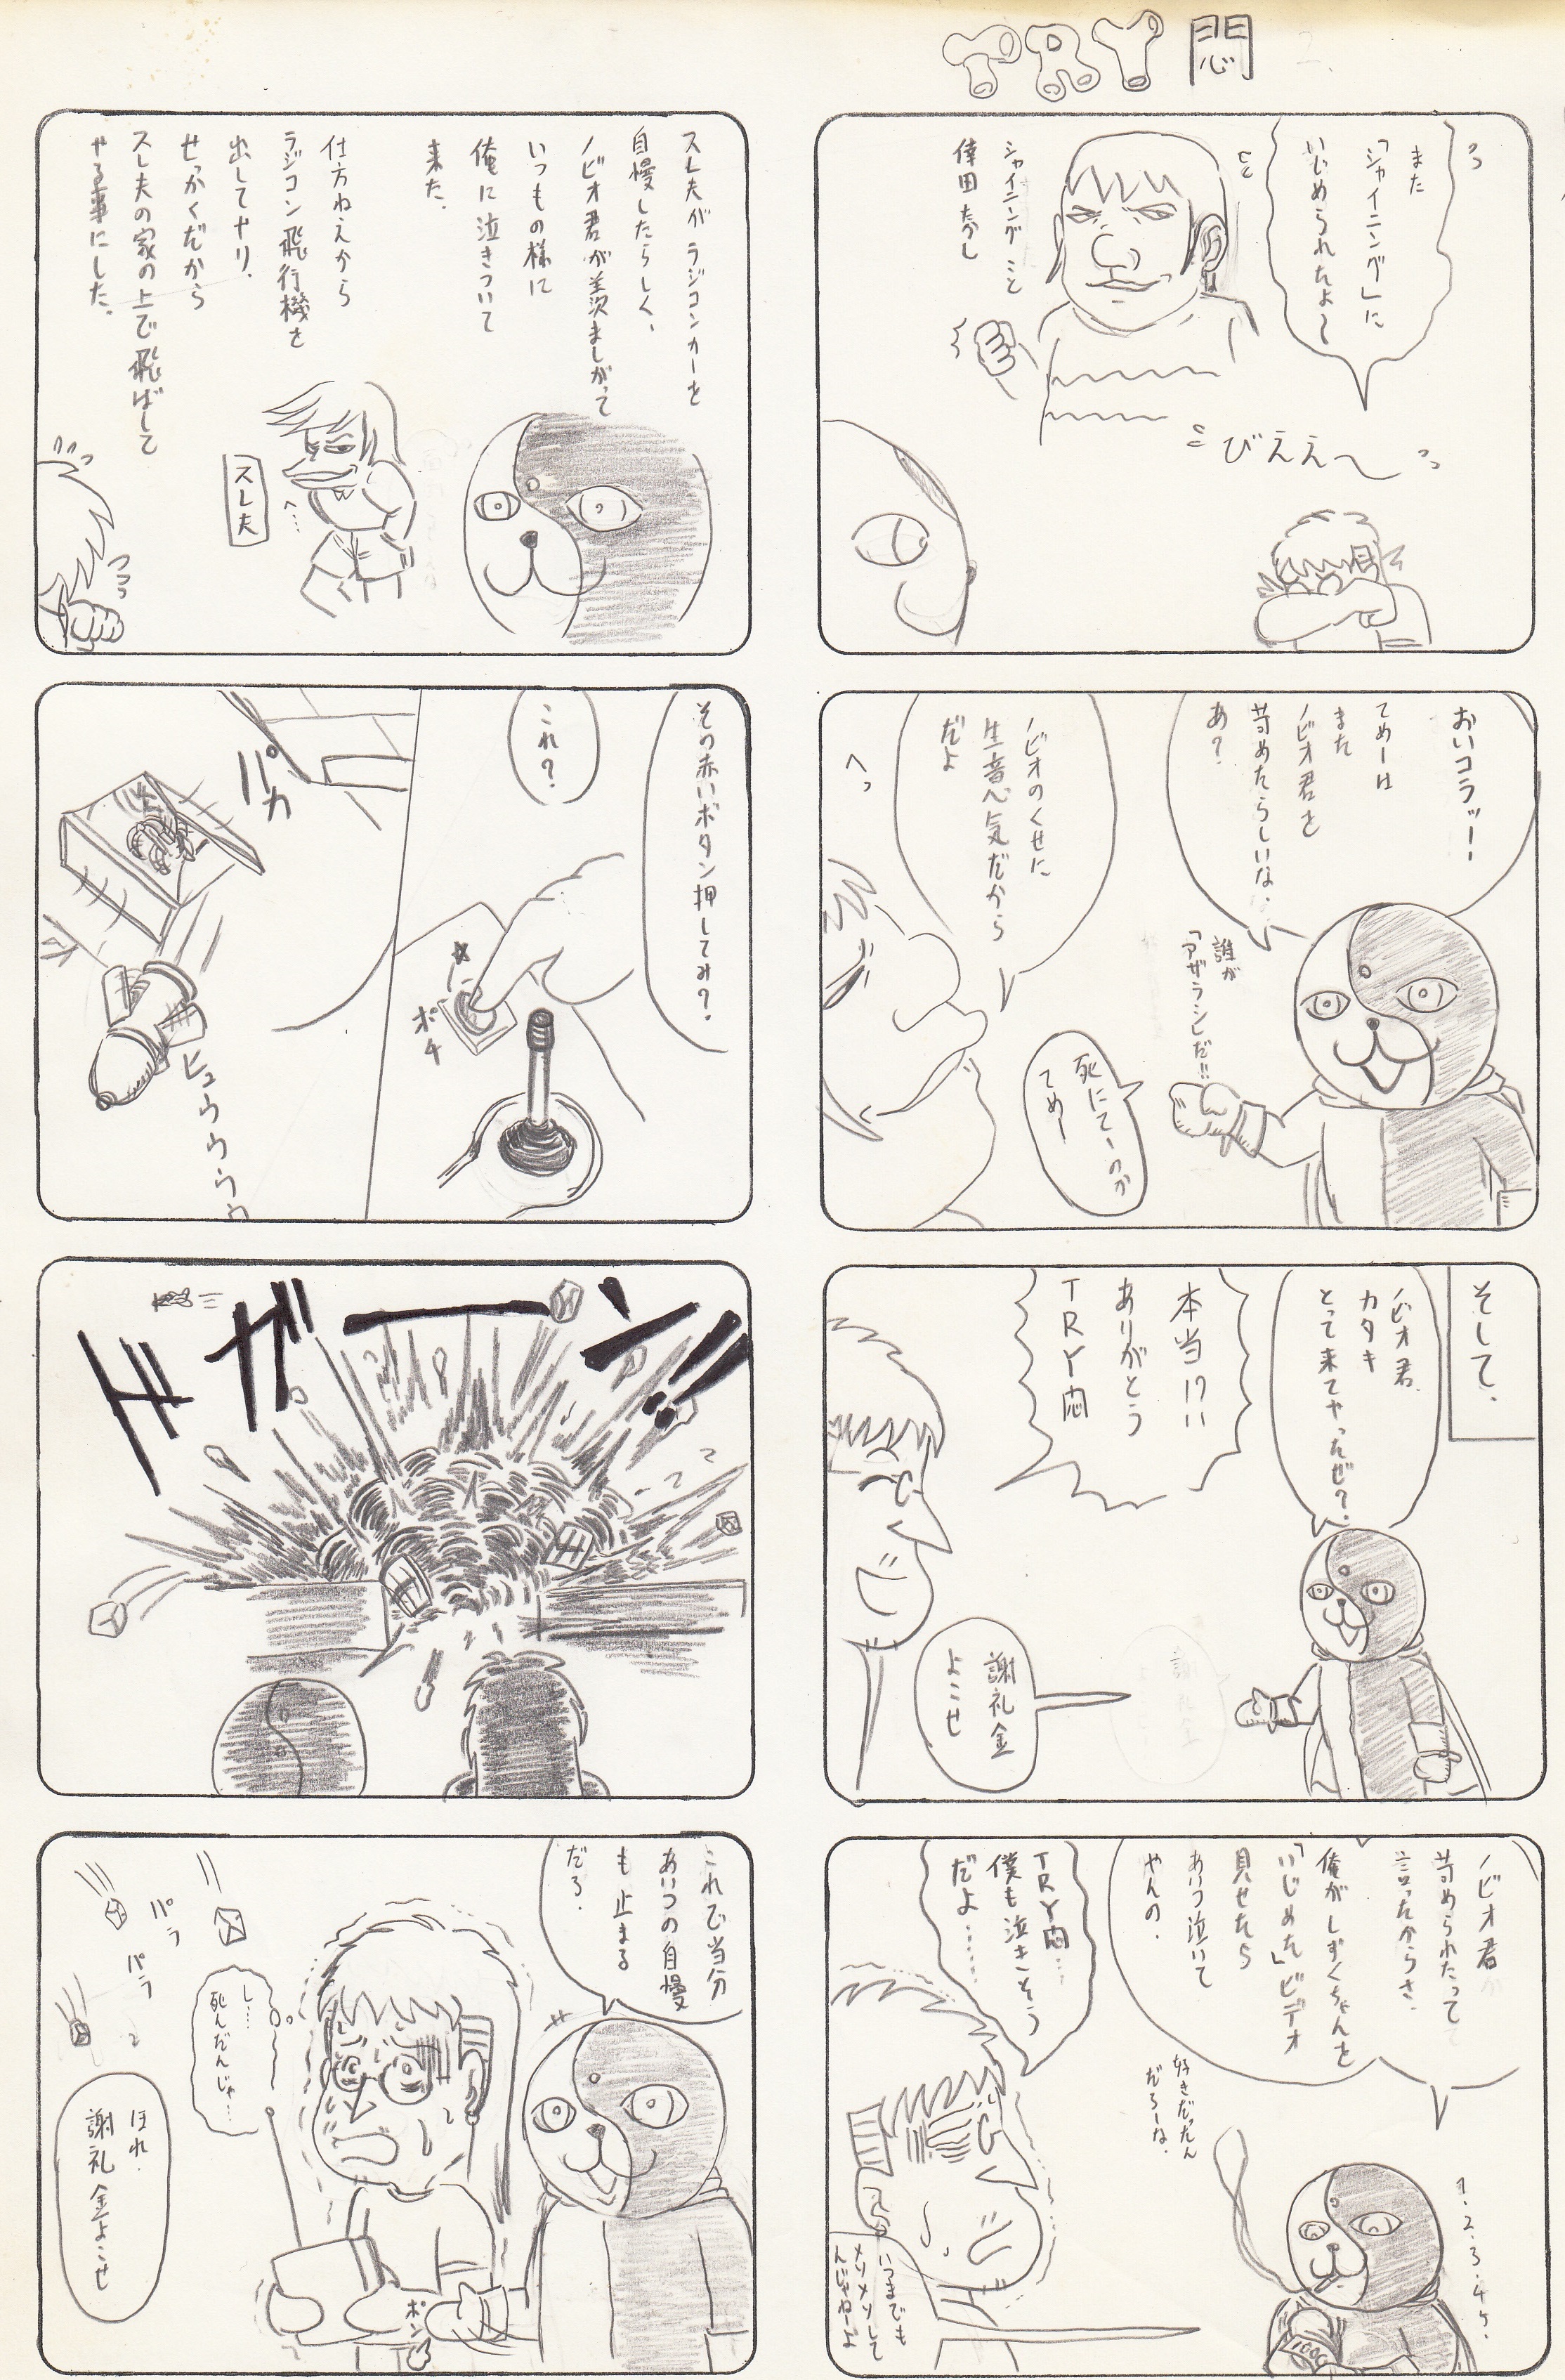 TRY悶
また
「シャイニング」に
いじめられたよ〜
シャイニングこと
びええ〜
おいコラッ!
てめーは
また
ノビオ君を
苛めたらしいな、
あ?
誰が
「アザラシ」だ!!
ノビオのくせに
生意気だから
だよ
へっ
死にてーのか
てめー
そして、
ノビオ君、
カタキ
とって来てやったぜ?
本当!?
ありがとう
TRY悶
謝礼金
よこせ
ノビオ君が
苛められたって
言ったからさ、
俺がしずくちゃんを
「いじめた」ビデオ
見せたら
あいつ泣いて
やんの。
好きだったん
だろーな。
1.2.3.4、
TRY悶…
僕も泣きそう
だよ……
いつまでも
メソメソして
んじゃねーよ
スレ夫がラジコンカーを
自慢したらしく、
ノビオ君が羨ましがって
いつもの様に
俺に泣きついて
来た。
仕方ねえから
ラジコン飛行機を
出してヤリ、
せっかくだから
スレ夫の家の上で飛ばして
やる事にした。
スレ夫
その赤いボタン押してみ?
これ?
ポチ
パカ
ヒュウウウウウ
ドガーン!!
これで当分
あいつの自慢
も止まる
だろ。
し…
死んだんじゃ…
パラ
パラ
ポン
ほれ、
謝礼金よこせ